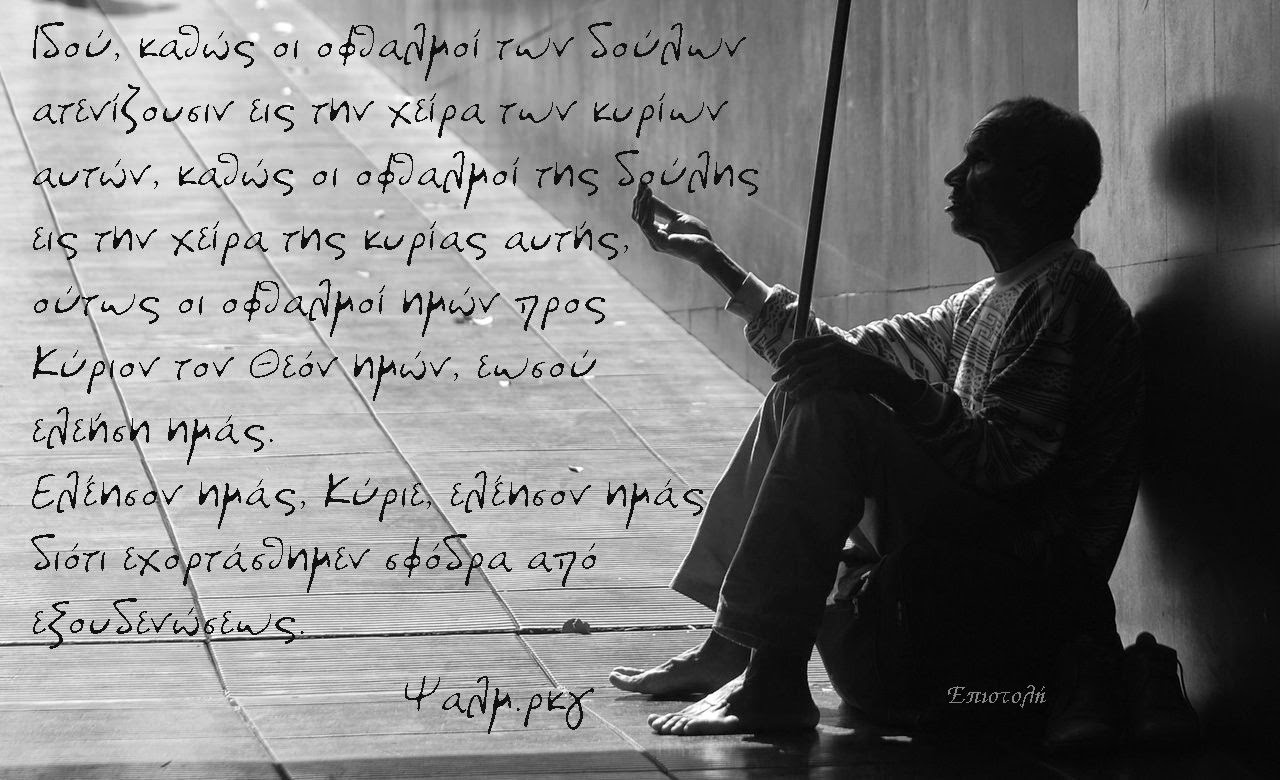 Ιδού, καθώς οι οφθαλμοί των δούλων
ατενίζουσιν εις την χείρα των κυρίων
αυτών, καθώς οι οφθαλμοί της δούλης
εις την χείρα της κυρίας αυτής,
ούτως οι οφθαλμοί ημών προς
Κύριον τον Θεόν ημών, εωσού
ελεήση ημάς.
Ελέησον ημάς, Κύριε, ελέησον ημάς
διότι εχορτάσθημεν σφόδρα από
εξουδενώσεως.
Ψαλμ.ρκγ
Επιστολή